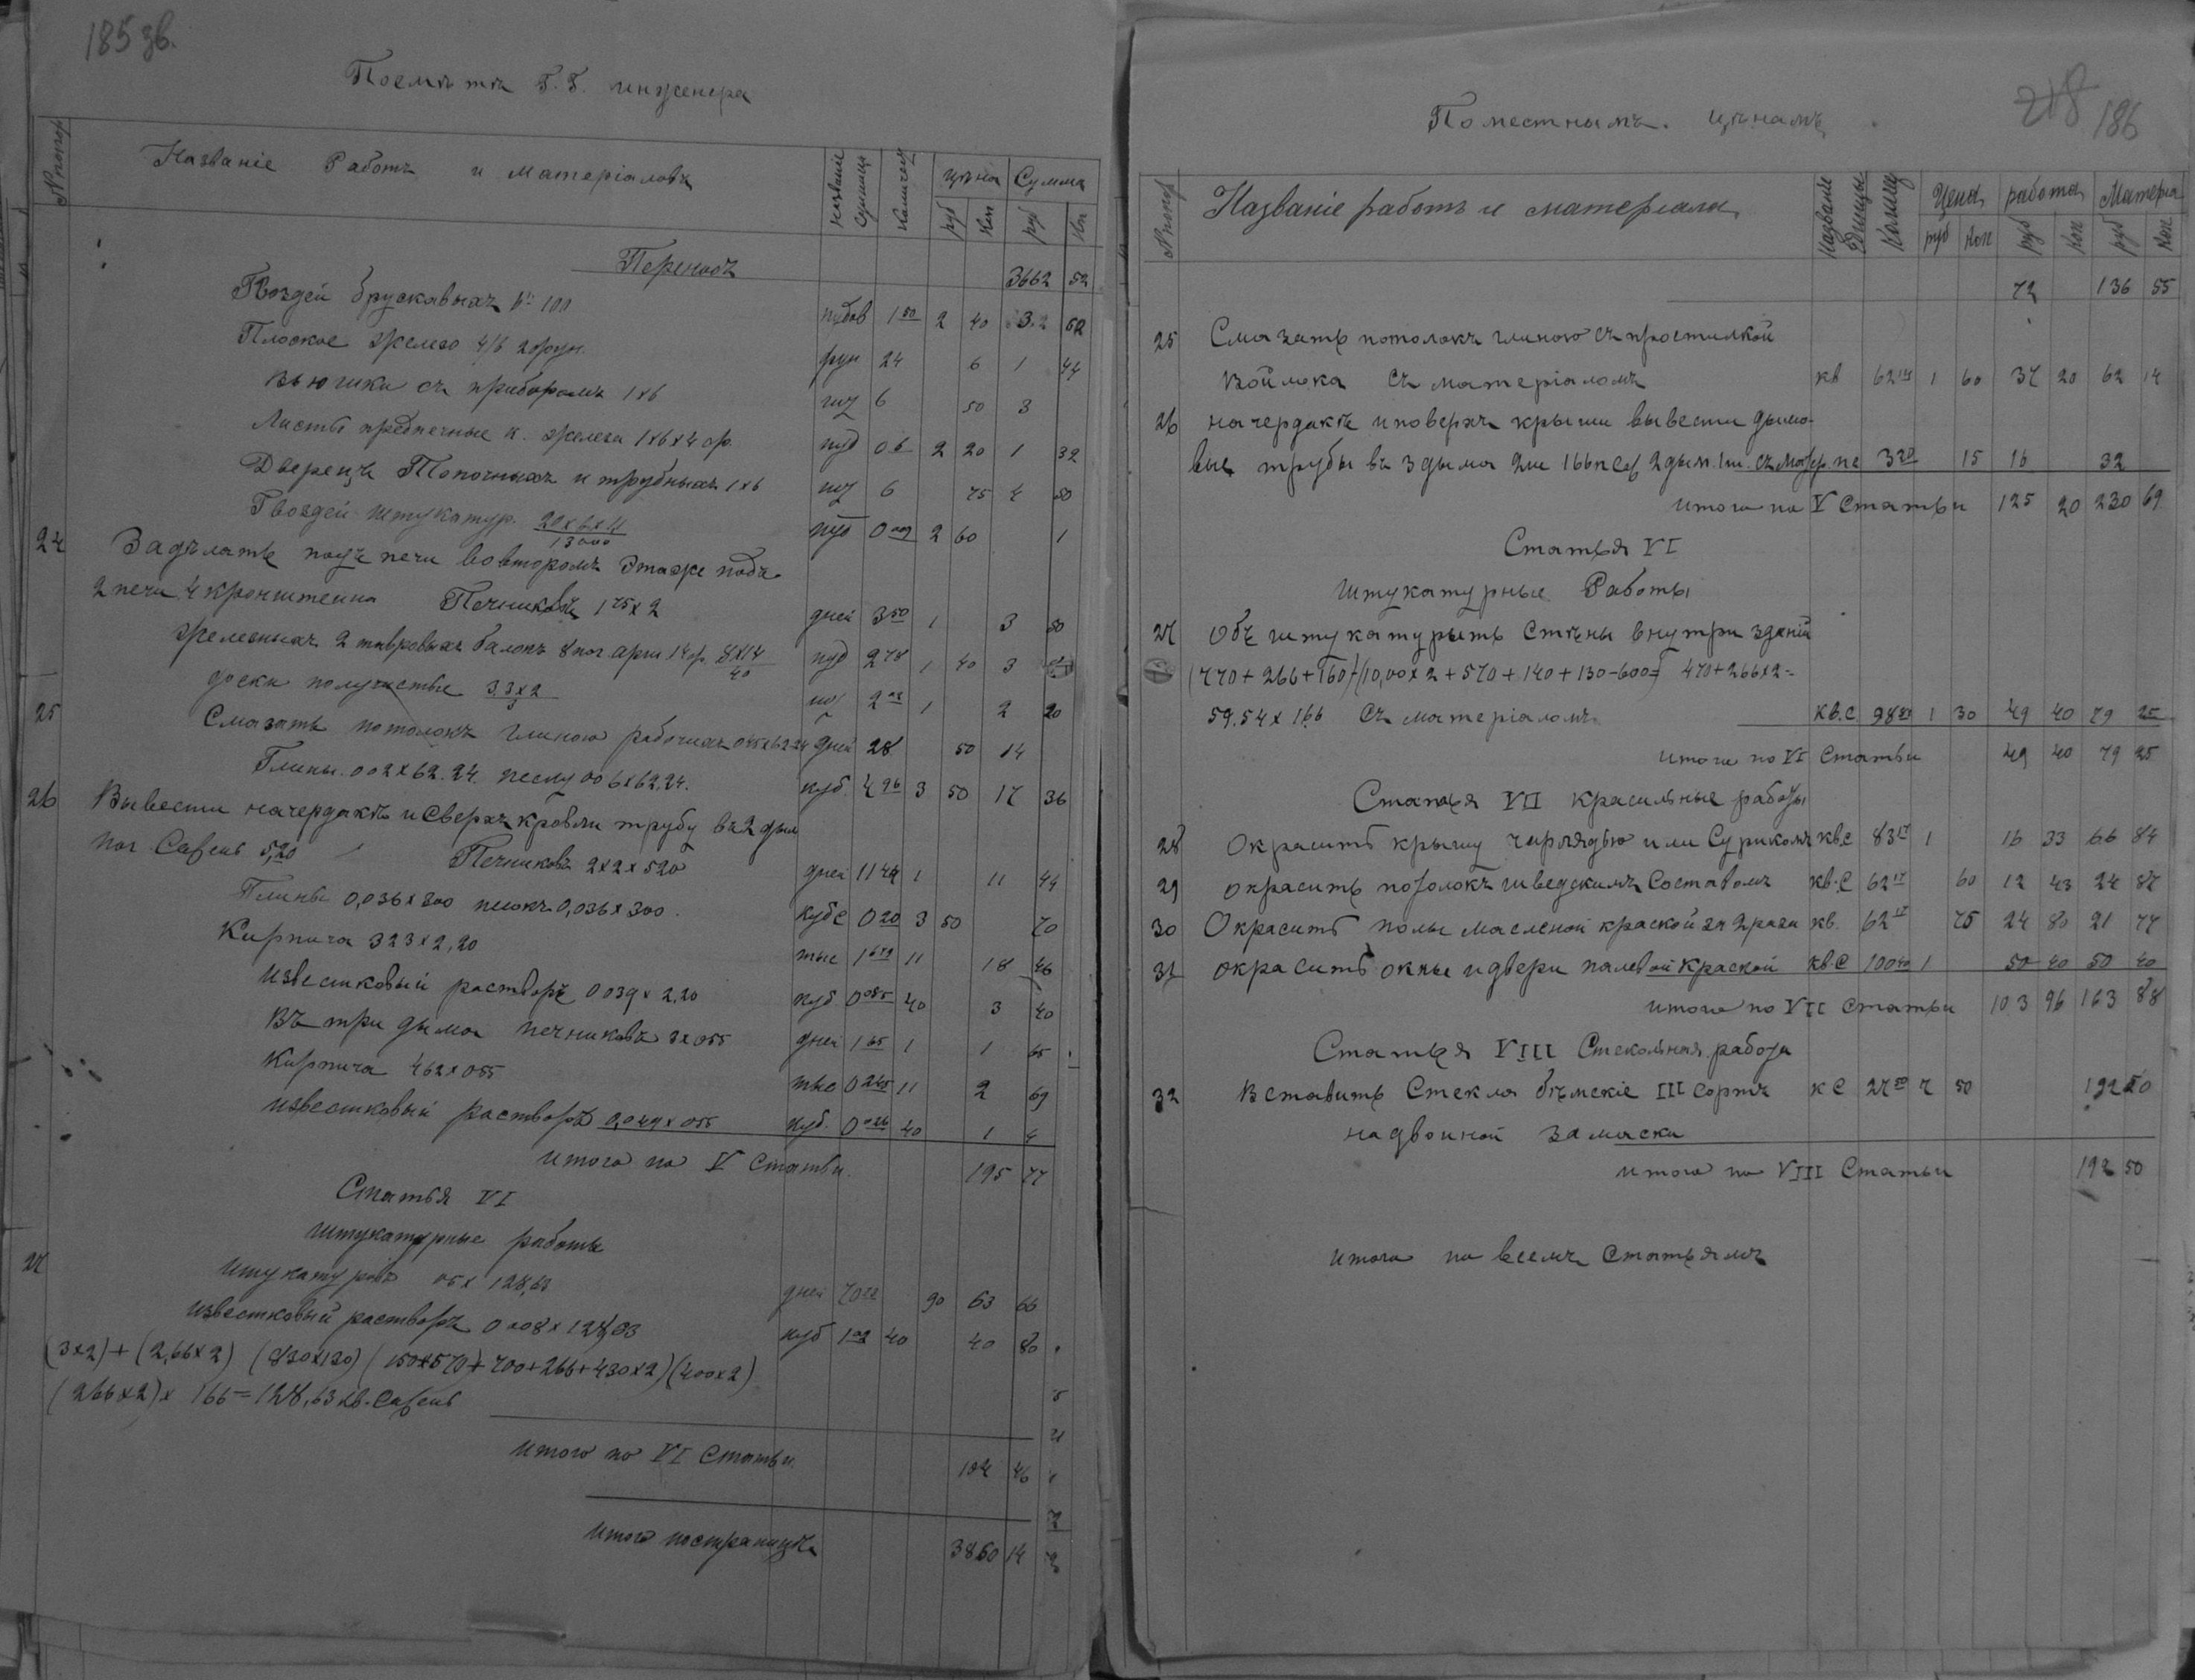 185 зв.
Посмѣта Г.Г. инженера
№ попор
Названіе Работъ и матеріаловъ
название единица
Количест
цѣна
Сумма
руб Коп руб Кп
Переносъ 3662 52
Гвоздей брусковыхъ 6" 100 пудов 1 50 2 40 3.2 52
Плоское железо 4/8 20фун. фун 24 6 1 44
Вьюшки съ приборомъ 1х6 шт 6 50 3
Листы предпечные к. железа 1х6х4 ф. пуд 06 2 20 1 32
Дверецъ Топочныхъ и трубныхъ 1х6 шт 6 75 4 50
Гвоздей штукатур. 20х6х11 / 13000 пуд 0 2 60 1
24 Задѣлать подъ печи во второмъ этаже подъ
2 печи 4 кронштеина Печниковъ 1 75х2 дней 3 50 1 3 50
железныхъ 2 тавровыхъ балокъ 8 пог. арш 14 ф. 8х14 / 40 пуд 2 78 1 40 3
доски получистые 3.3х2 / 3 шт 2 1 2 20
25 Смазать потолокъ глиною рабочихъ 045х62.24 дней 28 50 14
Глины. 002х62.24. песку 006х62.24. куб. 4 96 3 50 17 36
26 Вывести на чердакѣ и Сверхъ кровли трубу въ 2 дым
пог Сажень 5,20 Печниковъ 2х2х520 дней 11 44 1 11 44
Глины 0,036х300 песокъ 0,036х300. куб С 0 20 3 50 70
Кирпича 323х2,20 тыс 1 679 11 18 46
Известковый растворъ 0039х2,20 куб 0 085 40 3 40
Въ три дыма печниковъ 3х055 дней 1 65 1 1 65
Кирпича 462х055 тыс 0 245 11 2 69
известковый растворъ 0,049х055 куб. 0 026 40 1 4
итого по V Статьи. 195 77
Статья VI
Штукатурные работы
27 Штукатуровъ 05х 128,63 дней 70 72 90 63 66
известковый растворъ 0008х128,63 куб 1 02 40 40 80
(3х2)+(2,66х2) (830х130) (150х570)+700+266+430х2)(400х2)
(266х2)х 166=128,63 кв. Сажень
итого по VI Статьи. 104 46
Итого постраницѣ 3860 14
218 186
По местнымъ. цѣнамъ
№ попор
Названіе работъ и материала
Название Единицы
Колич
Цена работа Материа
руб Коп руб Коп руб Коп
72 136 55
25 Смазать потолокъ глиною съ простилкой
войлока съ матеріаломъ кв 62 14 1 60 37 20 62 14
26 на чердакѣ и поверхъ крыши вывести дымо-
вые трубы въ 3 дыма 2ш 166 п саж 2 дым. 1ш. съ матер. пс 3 20 15 16 32
итого по V Статьи 125 20 230 69
Статья VI
Штукатурные Работы
27 Объ штукатурыть Стѣны внутри зданій
(770+266+160)+(10,00х2+570+140+130-600= 470+266х2=
59.54х166 Съ матеріаломъ кв.с 98 83 1 30 49 40 79 25
итого по VI Статьи 49 40 79 25
Статья VII красильные работы
28 Окрасить крышу чирлядью или Сурикомъ кв.с 83 17 1 16 33 66 84
29 окрасить потолокъ шведскимъ Составомъ кв.С 62 17 60 12 43 24 87
30 Окрасить полы масленой краской за 2 раза кв. 62 17 75 24 80 21 77
31 окрасить окны и двери палевой краской кв.С 100 40 1 50 40 50 40
итого по VII Статьи 103 96 163 88
Статья VIII Стекольная работа
32 Вставить Стекла бѣмскіе III сортъ к С 27 50 7 50 192 50
на двоиной замаски
итого по VIII Статьи 192 50
итого по всемъ Статьямъ